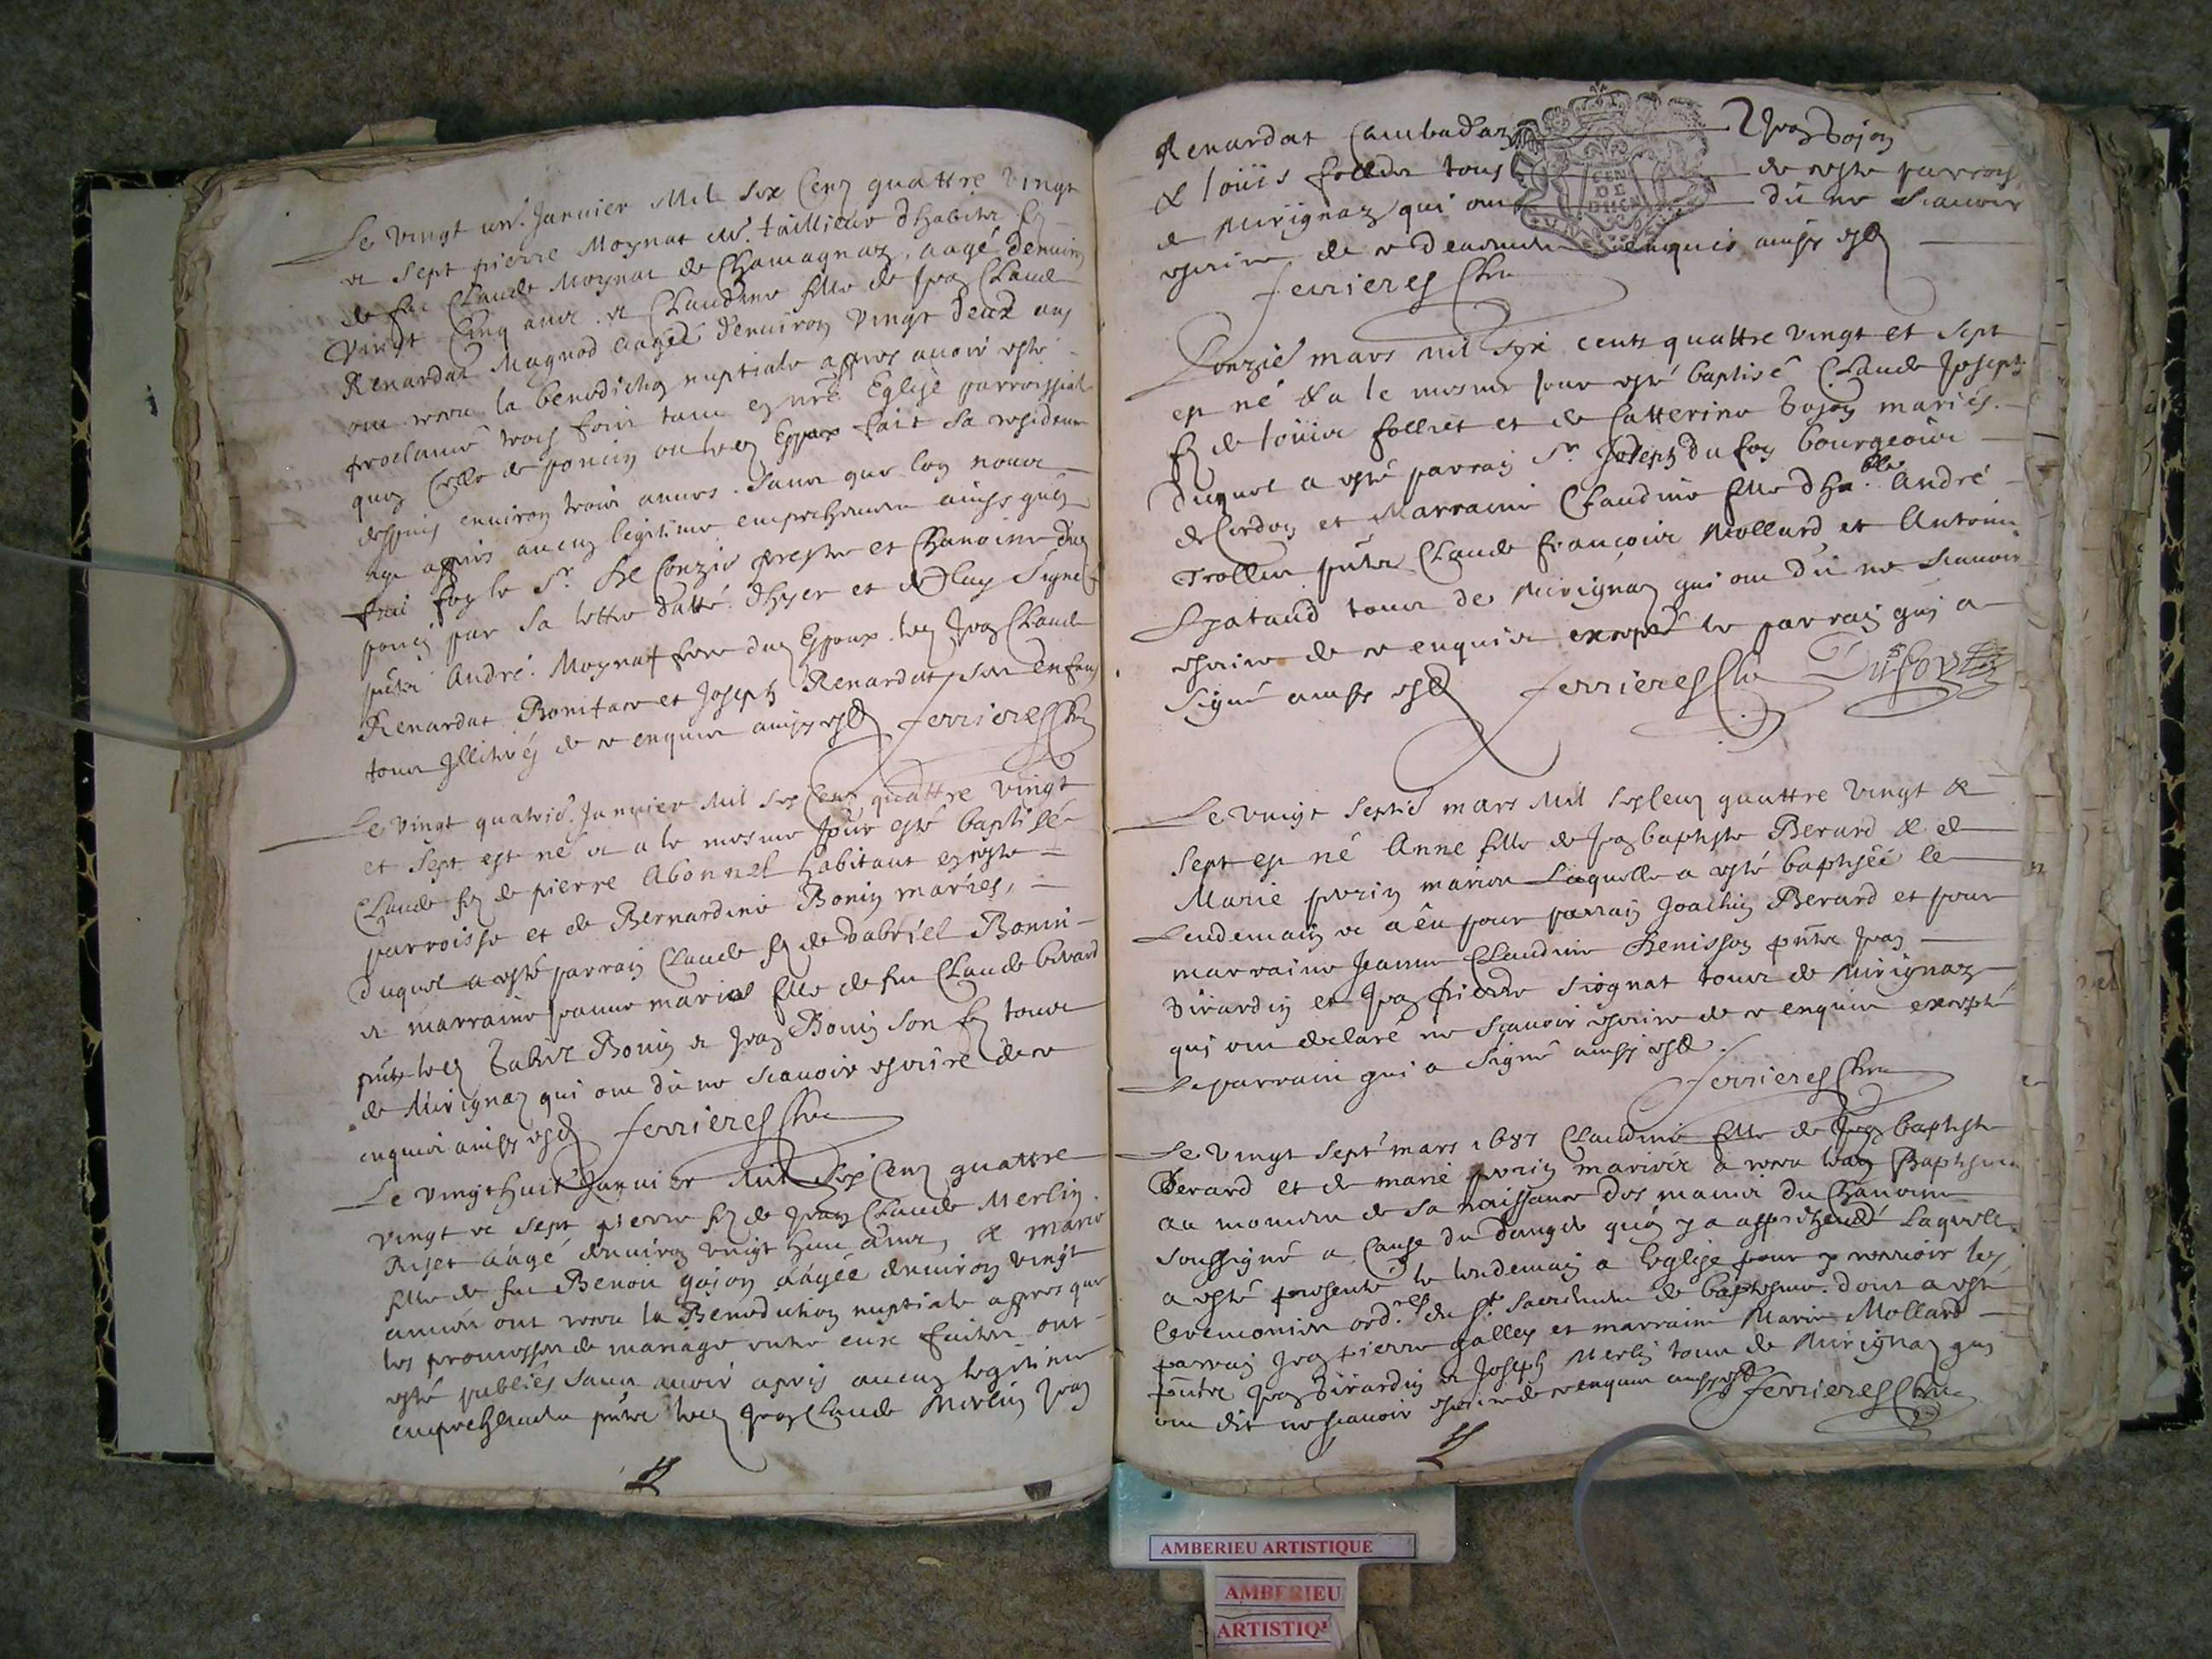 Le vingt un.e Januier Mil six Cens quattre vingt
et sept pierre Moynat me. taillieur dhabits fils
de feu Claude Moynat de Chamagnaz, aagé denuiron
Vingt Cinq ans. et Claudine fille de Jean Claude
Renardat Magnod aagée denuiron vingt deux ans
ont receu la benediction nuptiale appres auoir esté
proclamé trois fois tant en nre Eglise parroissiale
quen Celle de poncin ou led Espoux fait sa residence
despuis enuiron trois années. sans que lon nous
aye appris aucun legitime empechement ainsy quen
fait foy le Sr. De Conzié prestre et Chanoine dud
poncin par sa lettre datté dhyer et de luy signé
pntz André Moynat frere dud Espoux led Jean Claude
Renardat Boniface et Joseph Renardat ses enfans
tous Illitrés de ce enquis ainsy est ferrieres Chne
Le vingt quatrie. Januier Mil six Cens quattre vingt
et sept est né et a le mesme jour esté baptisé
Claude fils de pierre Abonnel habitant en ceste
parroisse et de Bernardine Bonin mariés,
duquel a esté parrain Claude fils de Gabriel Bonin
et marraine Jeanne Marie fille de feu Claude
pnts led Gabriel Bonin et Jean Bonin son fils tous
de Mirignaz qui ont dit ne scauoir escrire de ce
enquis ainsy est ferrieres Chne
Le vingt huit Januier Mil six Cens quattre
vingt et sept pierre fils de Jean Claude Merlin
Riset aagé denuiron vingt huit ans, et Marie
fille de feu Benoit gojon aagée denuiron vingt
années ont receu la Benediction nuptiale appres que
les promesses de mariage entre eux faites ont
esté publiés sans auoir apris aucun legitime
empechement pntz led Jean Claude Merlin Jean
Renardat Cambadaz Jean Gojon
et Loüis folliet tous de ceste parrois
de Mirignaz qui ont dit ne scauoir
escrire de ce deuement enquis ainsy est
ferrieres Chne
Lonzie mars mil six cents quattre vingt et sept
est né et a le mesme jour esté baptisé Claude Joseph
fils de Loüis folliet et de Catterine Gojon mariés.
duquel a esté parrain Sr. Joseph du foy bourgeois
de Cerdon et Marraine Claudine fille dhble. André
Trollier pntz Claude francois Mollard et Antoine
tous de Mirignaz qui ont dit ne scauoir
escrire de ce enquis excepté le parrain qui a
signé ainsy est ferrieres Chne
Le vingt septie mars Mil six Cens quattre vingt et
sept est né Anne fille de Jean baptiste Berard et de
Marie perin mariés Laquelle a esté baptisée le
Lendemain et a eu pour parrain Joachin Berard et pour
marraine Jeanne Claudine Denisson pntz Jean
Girardin et Jean pierre siognat tous de Mirignaz
qui ont declaré ne scauoir escrire de ce enquis excepté
Le parrain qui a signé ainsy est.
ferrieres Chne
Le vingt sept mars 1687 Claudine fille de Jean baptiste
Berard et de marie perrin mariés a receu leau Baptismale
au moment de sa naissance des mains du Chanoine
soussigné a Cause du danger quon y a apprehendé Laquelle
a esté presenté le lendemain a leglise pour y receuoir les
Ceremonies ord.res du St. Sacrement de baptesme. dont a esté
parrain Jean pierre galley et marraine Marie Mollard
pntz Jean Girardin et Joseph Merlin tous de Mirignaz qui
ont dit ne scauoir escrire de ce enquis ainsy est ferrieres Chne
AMBERIEU ARTISTIQUE
AMBERIEU
ARTISTIQ